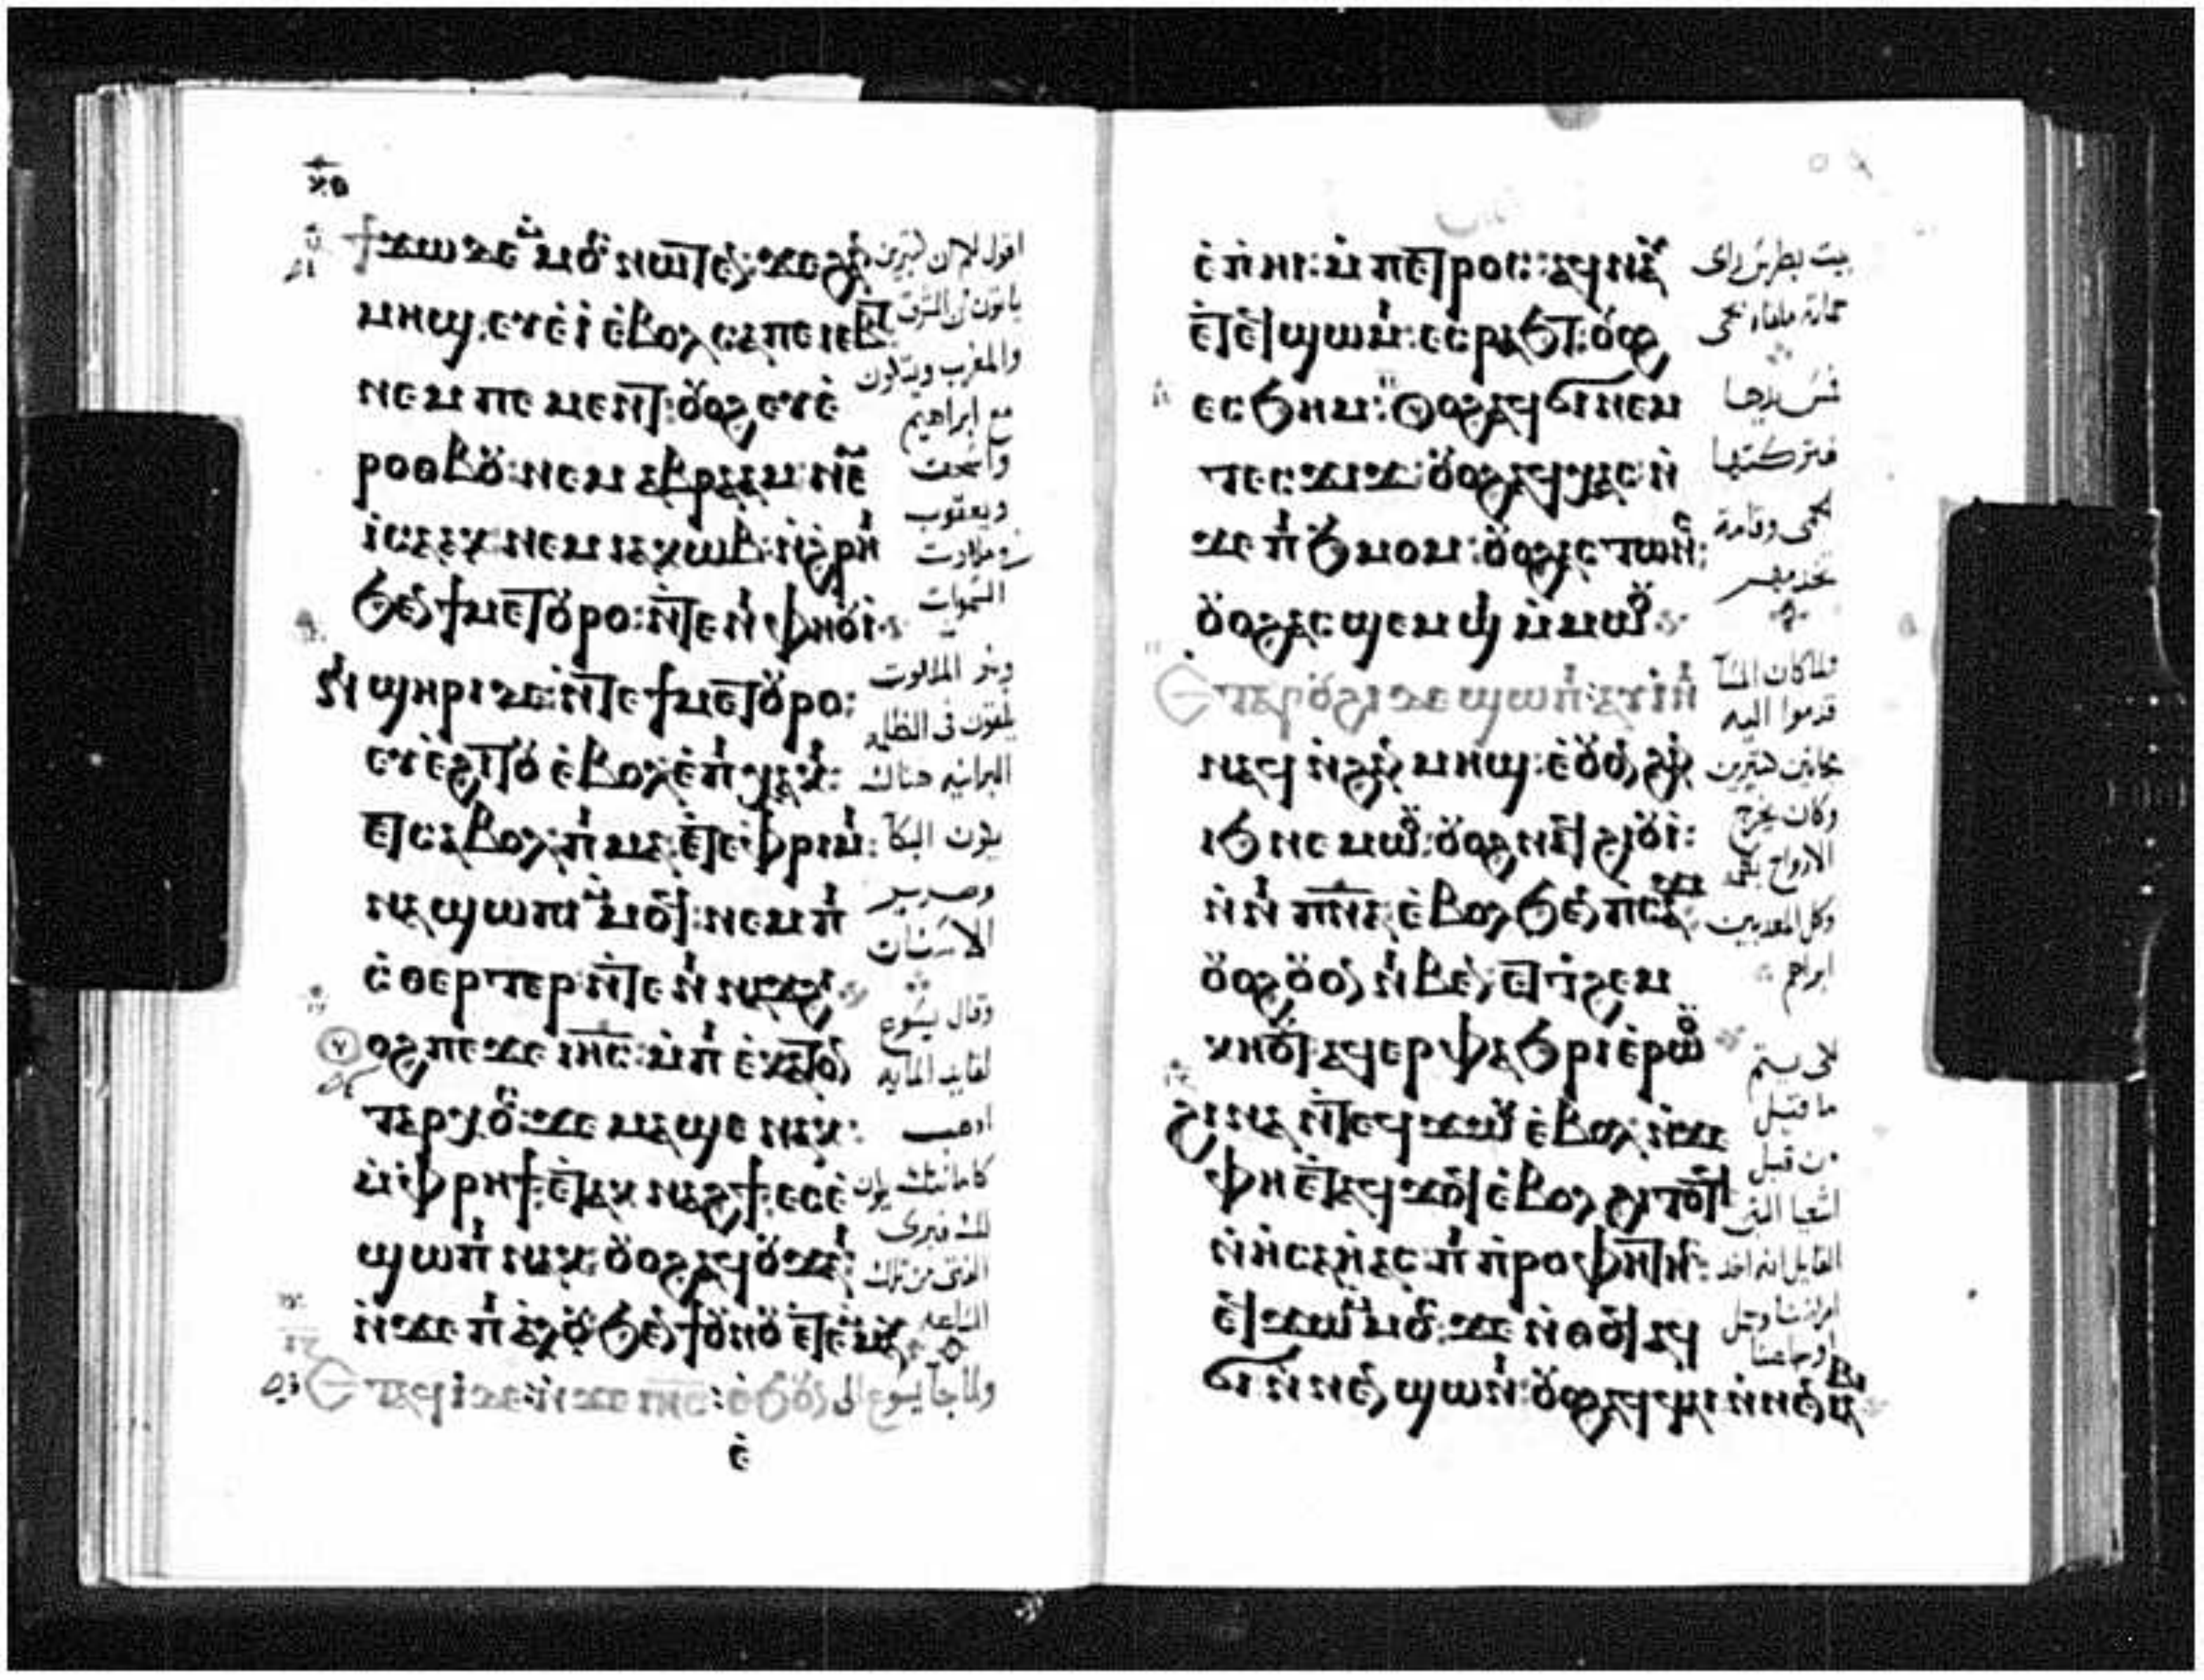 ϯϫⲱ ⲇⲉ ⲙ̀ⲙⲟⲥ ⲛⲱⲧⲉⲛ: ϫⲉ ⲟⲩⲟⲛ
ⲙⲏϣ. ⲉⲩⲉ̀ⲓ̀ ⲉ̀ⲃⲟⲗ ⲥⲁ ⲡⲉⲓⲉⲃⲧ
ⲛⲉⲙ ⲡⲉⲙⲉⲛⲧ: ⲟⲩⲟϩ ⲉⲩⲉ̀
ⲣⲟⲑⲃⲟⲩ: ⲛⲉⲙ ⲁⲃⲣⲁⲁⲙ: ⲛⲉⲙ
ⲓ̀ⲥⲁⲁⲕ: ⲛⲉⲙ ⲓⲁⲕⲱⲃ: ⲛ̀ϩⲣⲏⲓ
ϧⲉⲛ ϯⲙⲉⲧⲟⲩⲣⲟ: ⲛ̀ⲧⲉ ⲛⲓⲫⲏⲟⲩⲓ̀
ⲛⲓϣⲏⲣⲓ ⲇⲉ: ⲛ̀ⲧⲉ ϯⲙⲉⲧⲟⲩⲣⲟ:
ⲉⲩⲉ̀ϩⲓⲧⲟⲩ ⲉ̀ⲃⲟⲗ ⲉ̀ⲡⲓⲭⲁⲕⲓ:
ⲉⲧⲥⲁⲃⲟⲗ: ⲡⲓⲙⲁ ⲉ̀ⲧⲉ ⲫ̀ⲣⲓⲙⲓ:
ⲛⲁϣⲱⲡⲓ ⲙ̀ⲙⲟϥ: ⲛⲉⲙ ⲡⲓ
ⲥ̀ⲑⲉⲣⲧⲉⲣ ⲛ̀ⲧⲉ ⲛⲓⲛⲁϫϩⲓ
ⲟϩ ⲡⲉϫⲉ ⲓⲏⲥ: ⲙ̀ⲡⲓ ⲉ̀ⲕⲁⲧⲟⲛ
ⲧⲁⲣⲭⲟⲥ: ϫⲉ ⲙⲁϣⲉ ⲛⲁⲕ:
ⲙ̀ⲫ̀ⲣⲏϯ: ⲉ̀ⲧⲁⲕ ⲛⲁϩϯ: ⲉⲥⲉ̀
ϣⲱⲡⲓ ⲛⲁⲕ: ⲟⲩⲟϩ ⲁϥⲟⲩϫⲁⲓ:
ⲛ̀ϫⲉ ⲡⲓ ⲁ̀ⲗⲟⲩ ϧⲉⲛ ϯⲟⲩⲛⲟⲩ ⲉ̀ⲧⲉ̀ⲙⲙⲁⲩ
ⲉⲧⲁϥⲓ̀ ⲇⲉ: ⲛ̀ϫⲉ ⲓⲏⲥ: ⲉ̀ϧⲟⲩⲛ
ⲉ̀
اقول لكم ان كثيرين
ياتون من المشرق
والمغرب ويتكون
مع ابراهيم
واسحق
ويعقوب
في ملكوت
السموات
وبنو الملكوت
يلقون في الظلمه
البرانيه هناك
يكون البكا
وصرير
الاسنان
وقال يسوع
لقايد المايه
اذهب
كامانتك يكون
لك فبرى
الفتى من تلك
الساعه
ولما جا يسوع الى
ⲉ̀ⲡ̀ⲏⲓ: ⲙ̀ⲡⲉⲧⲣⲟⲥ: ⲁϥⲛⲁⲩ
ⲉ̀ⲧⲉϥϣⲱⲙⲓ: ⲉⲥⲣⲁϧⲧ: ⲟⲩⲟϩ
ⲉⲥϧⲏⲙ: ⲟⲩⲟϩ ⲁϥϭⲓ ⲛⲉⲙ
ⲧⲉⲥϫⲓϫ: ⲟⲩⲟϩ ⲁϥⲭⲁⲥ ⲛ̀
ϫⲉ ⲡⲓϧⲙⲟⲙ: ⲟⲩⲟϩ ⲁⲥⲧⲱⲛⲥ:
ⲟⲩⲟϩ ⲁⲥϣⲉⲙϣⲓ ⲙ̀ⲙⲱⲟⲩ
ⲉⲧⲁⲣⲟⲩϩⲓ ⲇⲉ ϣⲱⲡⲓ: ⲁⲩⲓ̀ⲛⲓ
ⲛⲁϥ ⲛ̀ϩⲁⲛ ⲙⲏϣ: ⲉ̀ⲟⲩⲟⲛ ϩⲁⲛ
ⲓϧ ⲛⲉⲙⲱⲟⲩ: ⲟⲩⲟϩ ⲛⲁϥϩⲓⲟⲩⲓ̀:
ⲛ̀ⲛⲓⲡⲛⲁ ⲉ̀ⲃⲟⲗ ϧⲉⲛ ⲡ̀ⲥⲁϫⲓ
ⲟⲩⲟϩ ⲟⲩⲟⲛ ⲛⲓⲃⲉⲛ: ⲉⲧⲧϩⲉⲙ
ⲕⲏⲟⲩⲧ: ⲁϥⲉⲣⲫⲁϧⲣⲓ ⲉ̀ⲣⲱⲟⲩ
ϩⲓⲛⲁ ⲛ̀ⲧⲉϥϫⲱⲕ ⲉ̀ⲃⲟⲗ: ⲛ̀ϫⲉ
ⲫⲏ ⲉ̀ⲧⲁϥϫⲟϥ ⲉ̀ⲃⲟⲗ ϩⲓⲧⲟⲧϥ
ⲛ̀ⲏⲥⲁⲏ̀ⲁⲥ: ⲡⲓⲡ̀ⲣⲟⲫⲏⲧⲏⲥ:
ⲉϥϫⲱ ⲙ̀ⲙⲟⲥ: ϫⲉ ⲛ̀ⲑⲟϥ ⲁϥ
ϭⲓ ⲛ̀ⲛⲉⲛϣⲱⲛⲓ: ⲟⲩⲟϩ ⲁϥϥⲁⲓ ⲛ̀ⲛⲉⲛ
بيت بطرس راى
حماته ملقاه تحمى
فمس يدها
فتركتها
الحمى وقامة
تخدمهم
ولما كان المسآ
قدموا اليه
مجانين كثيرين
وكان يخرج
الارواح بكلمه
وكل المعدبين
ابراهم
لكى يتم
ما قيل
من قبل
اشعيا النبى
القايل انه اخد
امراضنا وحمل
اوجاعنا